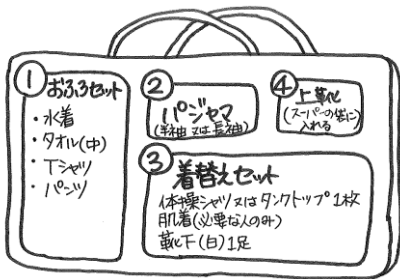 ① おふろセット
・水着
・タオル(中)
・Tシャツ
・パンツ
② パジャマ
(半袖又は長袖)
④ 上靴
(スーパーの袋に
入れる)
③ 着替えセット
体操シャツ又はタンクトップ1枚
肌着(必要な人のみ)
靴下(白)1足